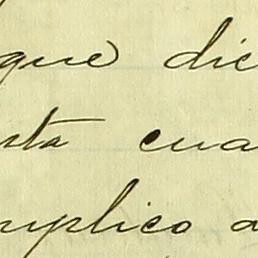 que dic
sta cua
uplico a